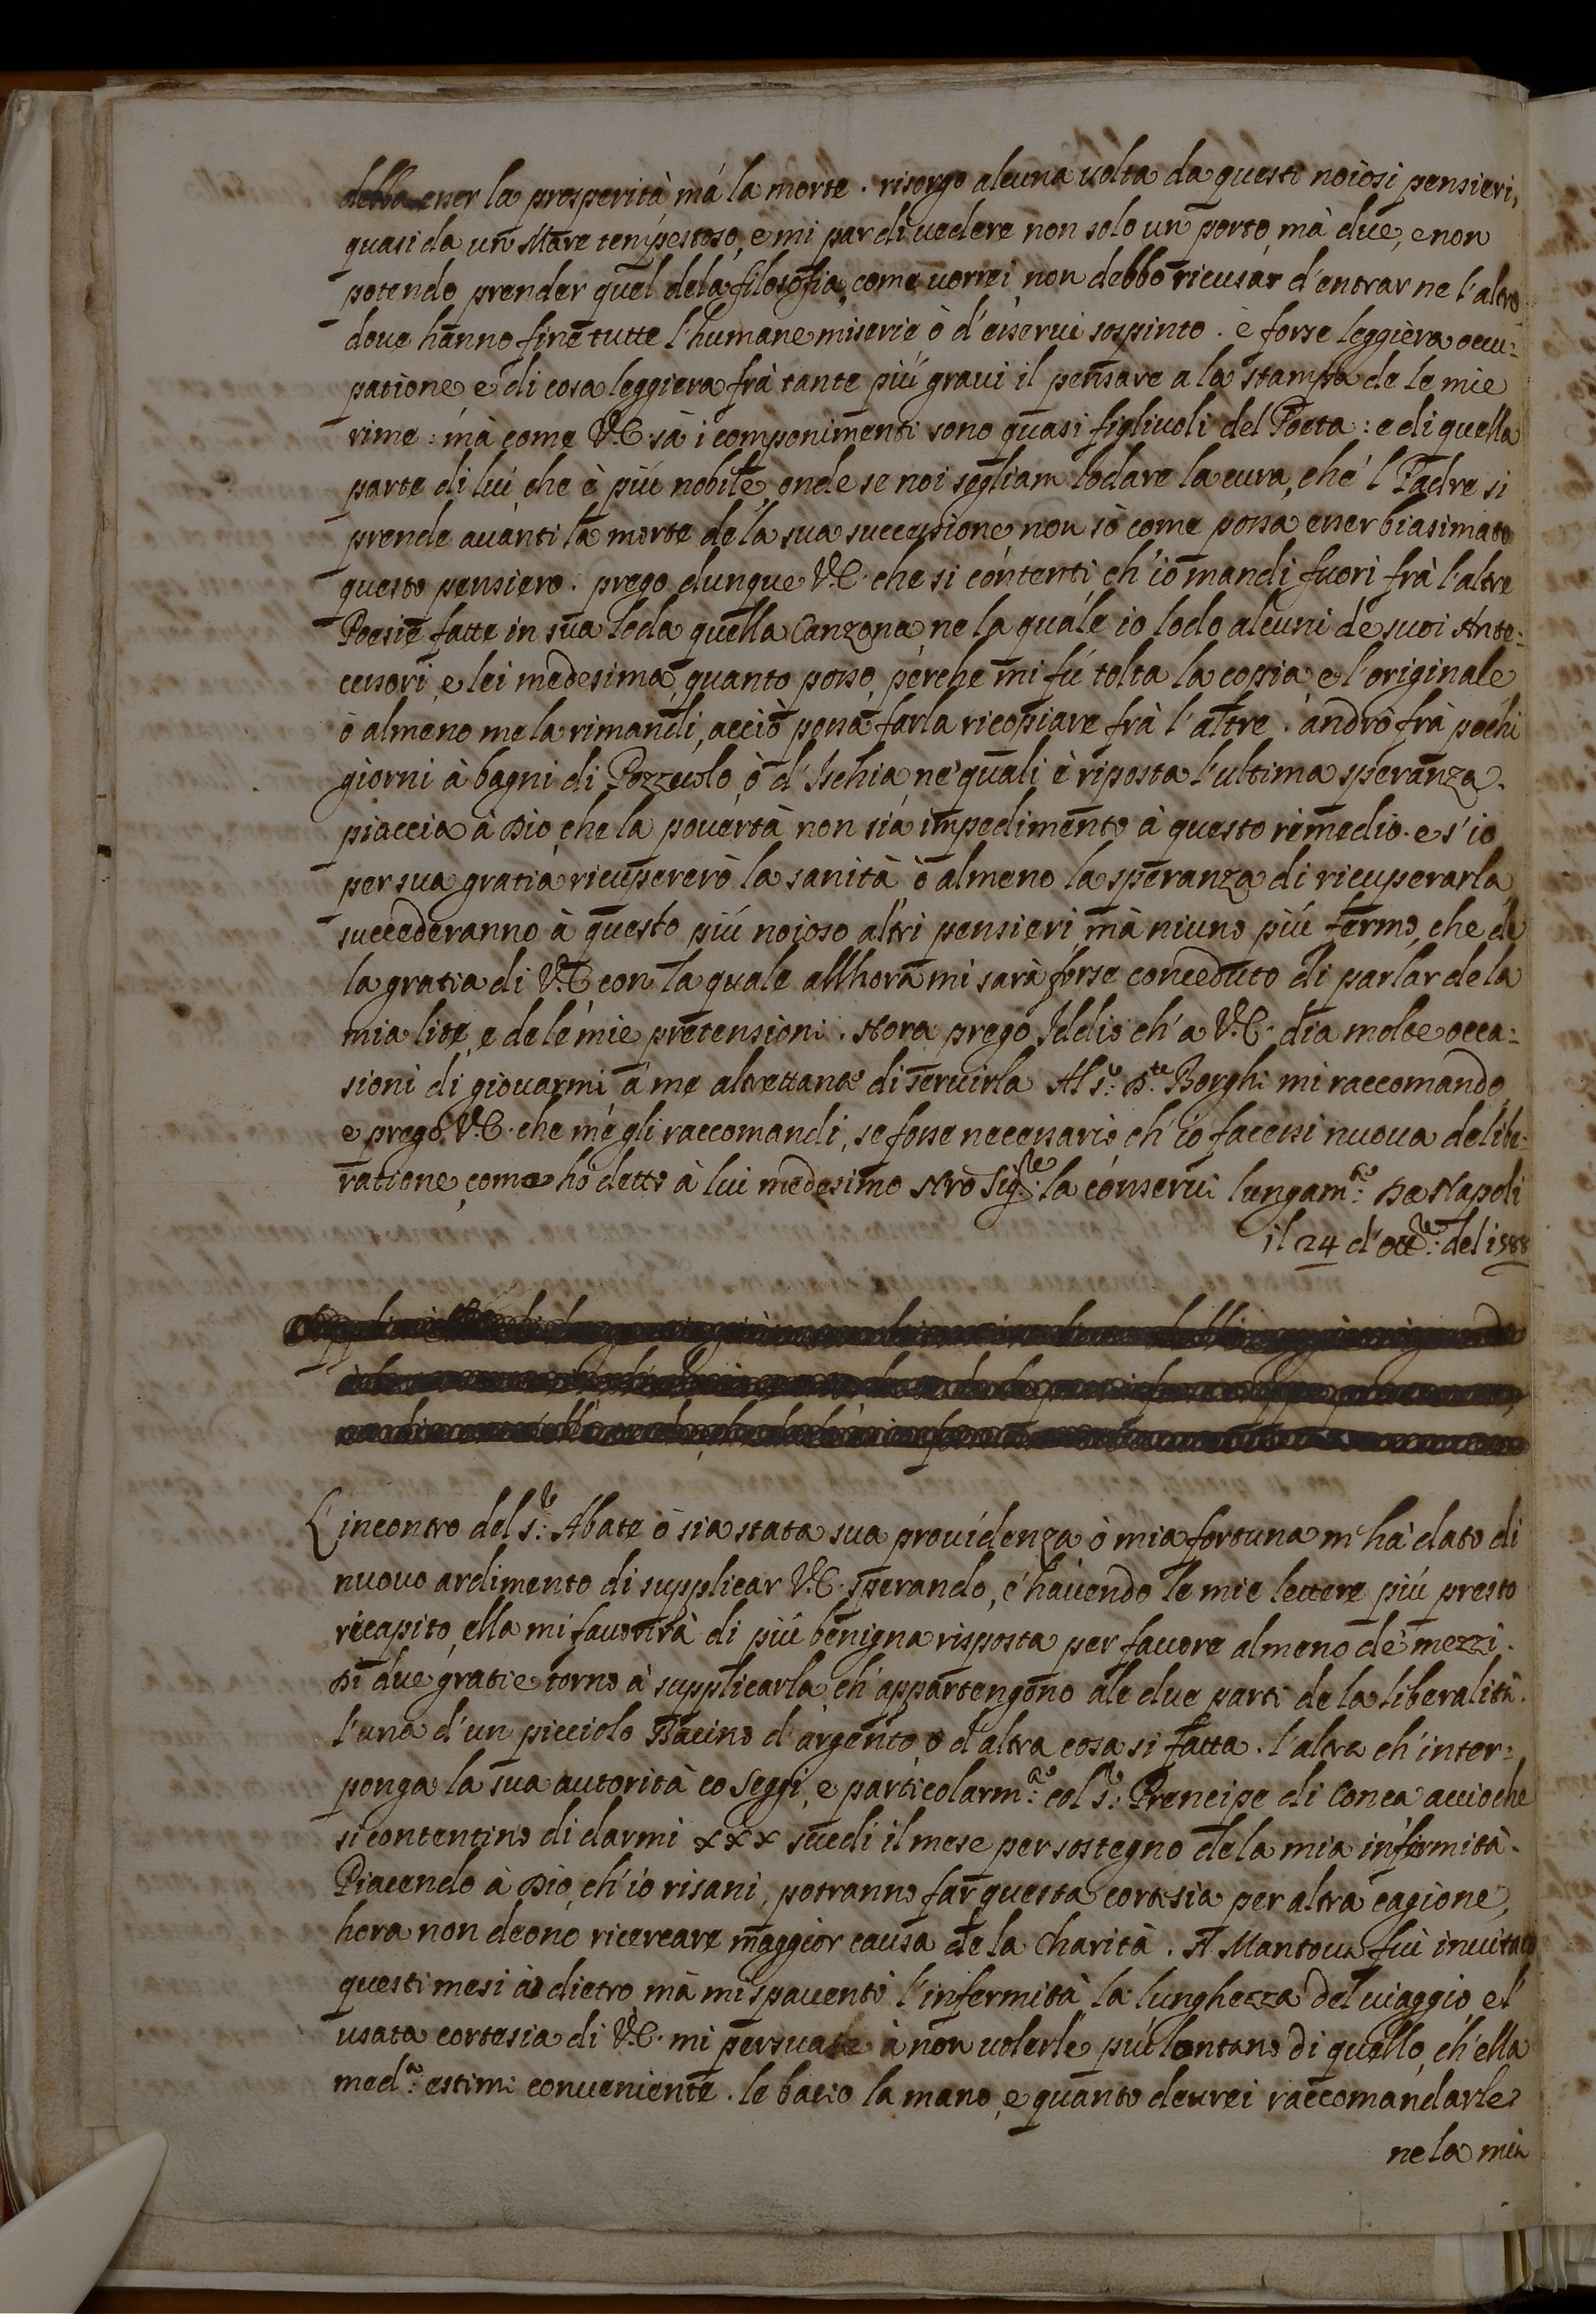 debba esser la prosperità mà la morte. risorgo alcuna uolta da questi noiosi pensieri,
quasi da un Mare tempestoso, e mi par di uedere non solo un porto, mà due, e non
potendo prender quel dela filosofia, come uorrei, non debbo ricusar d'entrar ne l'altro
doue hanno fine tutte l'humane miserie ò d'eiserui sospinto. è forse leggiera occu:
patione, e di cosa leggiera frà tante più graui il pensare a la stampa de le mie
rime: mà come V.E. sà i componimenti sono quasi figliuoli del Poeta: e di quella
parte di lui che è più nobile, onde se noi sogliam lodare la cura, che 'l Padre si
prende auanti la morte de la sua successione, non sò come possa esser biasimato
questo pensiero. prego dunque V.E. che si contenti, ch'io mandi fuori frà l'altre
Poesie fatte in sua loda quella Canzona, ne la quale io lodo alcuni de suoi Ante:
cessori, e lei medesima, quanto posso, perche mi fù tolta la copia, e l'originale,
ò almeno me la rimandi, acciò possa farla ricopiare frà l'altre. andrò frà pochi
giorni à bagni di Pozzuolo, ò d'Ischia, ne' quali è riposta l'ultima speranza.
piaccia à Dio, che la pouertà non sia impedimento à questo remedio. e s'io
per sua gratia ricupererò la sanità ò almeno la speranza di ricuperarla,
succederanno à questo più noioso altri pensieri, mà niuno più fermo, che de
la gratia di V.E. con la quale allhora mi sarà forse conceduto di parlar de la
mia lite, e de le mie pretensioni. Hora prego Iddio ch'a V.E. dia molte occa:
sioni di giouarmi, à me altrettante di seruirla. Al S.r D.te Borghi mi raccomando,
e prego V.E. che mè gli raccomandi, se fosse necessario, ch'io facessi nuoua delibe:
ratione, come hò detto à lui medesimo. Nrò Sig.re la conserui lungam.te Da Napoli
il 24 d'ott.re del 1588
L'incontro del S.r Abate ò sia stata sua prouidenza ò mia fortuna m'hà dato di
nuouo ardimento di supplicar V.E. sperando, c'hauendo le mie lettere più presto
ricapito, ella mi fauorirà di più benigna risposta per fauore almeno dè mezzi.
Di due gratie torno à supplicarla, ch'appartengono ale due parti de la liberalità.
l'una d'un picciolo Bacino d'argento, o d'altra cosa si fatta. l'altra ch'inter:
ponga la sua autorità co Seggi, e particolarm.te col S.r Prencipe di Conca accioche
si contentino di darmi xxx scudi il mese per sostegno de la mia infermità.
Piacendo à Dio, ch'io risani, potranno far questa cortesia per altra cagione,
hora non deono ricercare maggior causa de la charità. A Mantoua fui inuitato
questi mesi à dietro, mà mi spauentò l'infermità la lunghezza del uiaggio, e l'
usata cortesia di V.E. mi persuase à non uolerle più lontano di quello, ch'ella
med.ma estimi conueniente. le bacio la mano, e quanto deurei raccomandarle
ne la mia